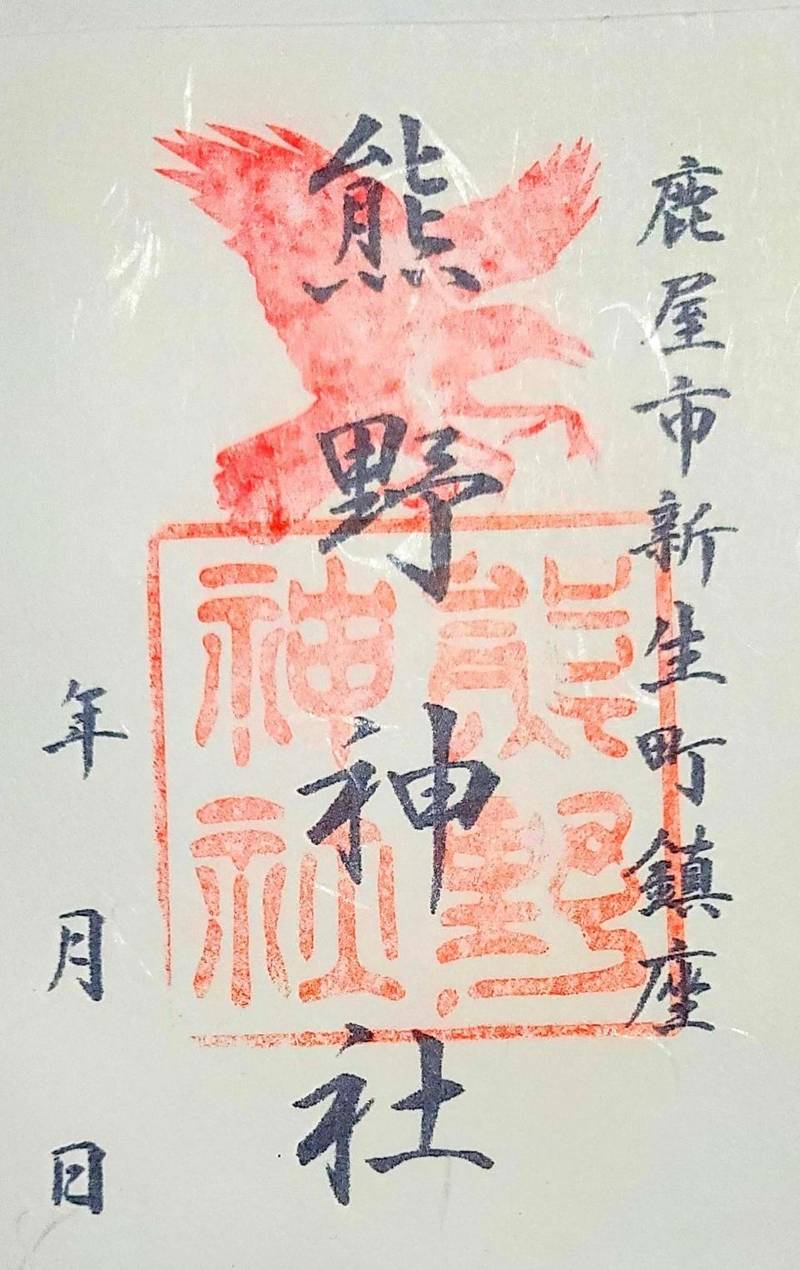 鹿屋市新生町鎮座
熊野神社
熊野
神社
年 月 日